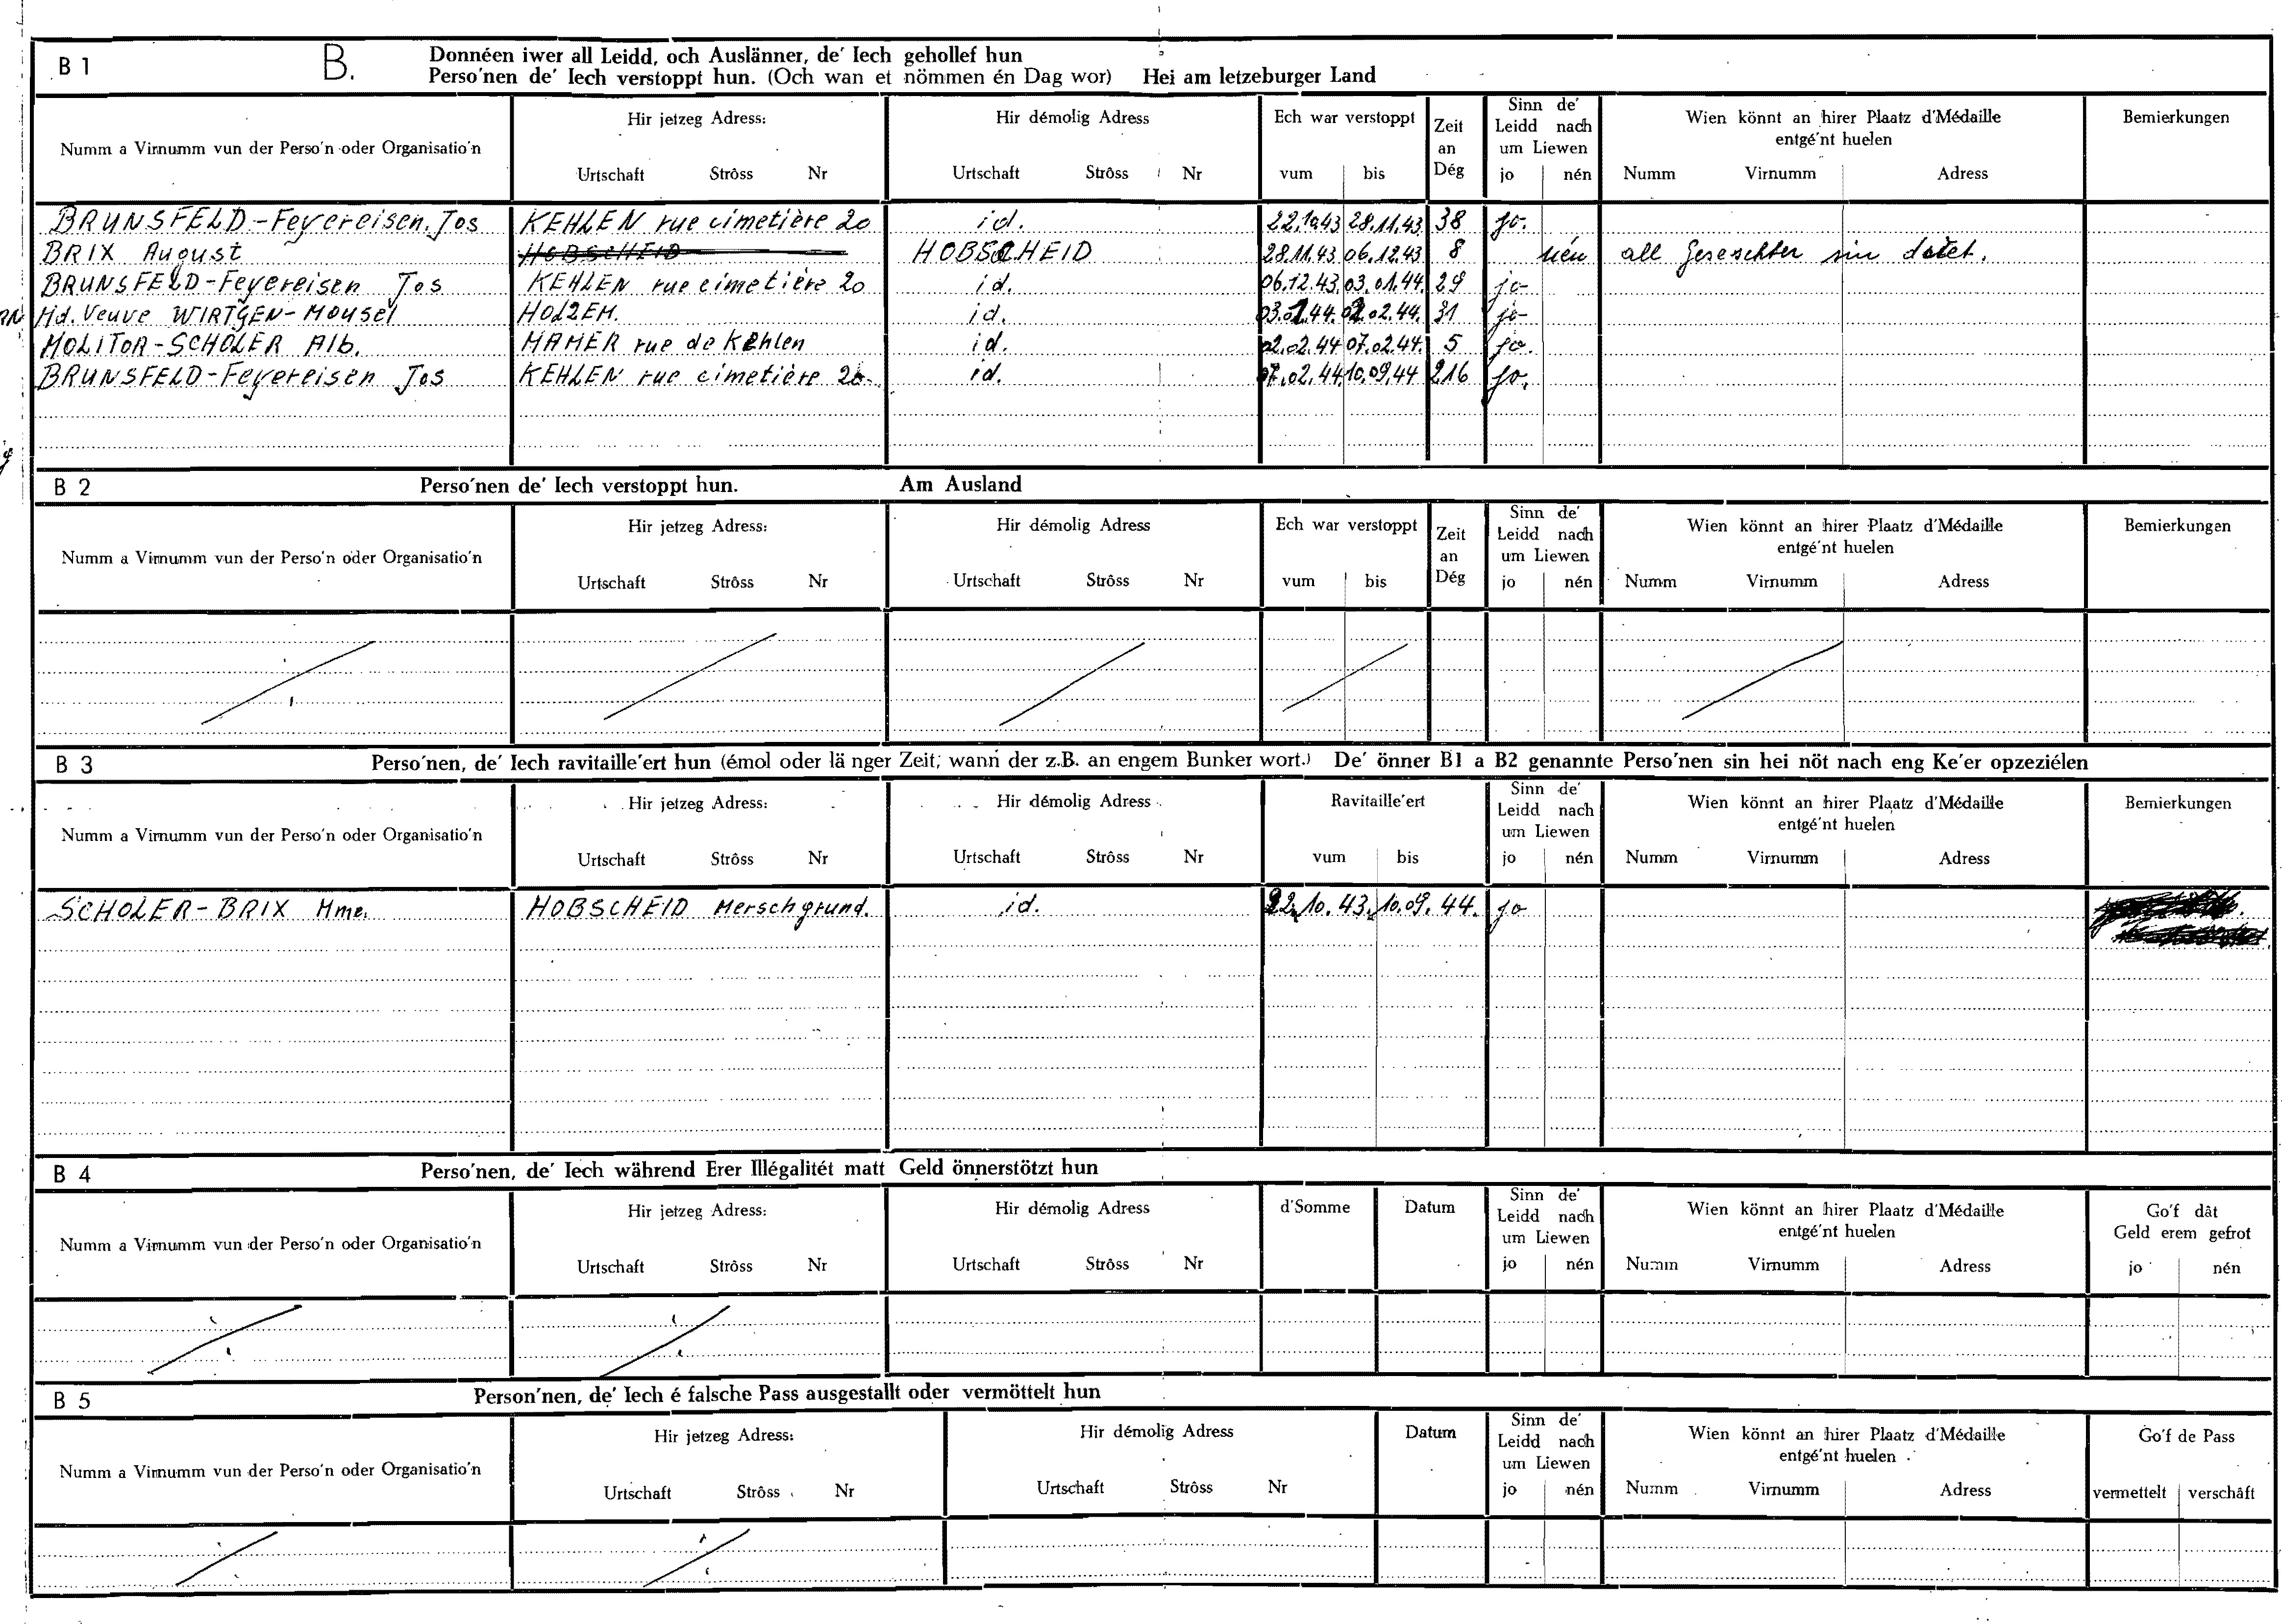 B 1 B. Donnéen iwer all Leidd, och Auslänner, de' Iech gehollef hun
Perso'nen de' Iech verstoppt hun. (Och wan et nömmen én Dag wor) Hei am letzeburger Land
Numm a Virnumm vun der Perso'n oder Organisatio'n
Hir jetzeg Adress:
Urtschaft Strôss Nr
Hir démolig Adress
Urtschaft Strôss Nr
Ech war verstoppt
vum bis
Zeit
an
Dég
Sinn de'
Leidd nach
um Liewen
jo nén
Wien könnt an hirer Plaatz d'Médaille
entgé'nt huelen
Numm Virnumm Adress
Bemierkungen
BRUNSFELD-Feyereisen. Jos KEHLEN rue cimetière 20 id. 22.10.43 28.11.43 38 jo.
BRIX August HOBSCHEID HOBSCHEID 28.11.43 06.12.43 8 nén all sin
BRUNSFELD-Feyereisen Jos KEHLEN rue cimetière 20 id. 06.12.43 03.01.44. 29 jo
Md. Veuve WIRTGEN-Mousel HOLZEM. id. 03.01.44. 02.02.44. 31 jo
MOLITOR-SCHOLER Alb. MAMER rue de Kehlen id. 02.02.44 07.02.44. 5 jo.
BRUNSFELD-Feyereisen Jos KEHLEN rue cimetière 20. id. 07.02.44. 10.09.44 216 jo.
B 2 Perso'nen de' Iech verstoppt hun. Am Ausland
Numm a Virnumm vun der Perso'n oder Organisatio'n
Hir jetzeg Adress:
Urtschaft Strôss Nr
Hir démolig Adress
Urtschaft Strôss Nr
Ech war verstoppt
vum bis
Zeit
an
Dég
Sinn de'
Leidd nach
um Liewen
jo nén
Wien könnt an hirer Plaatz d'Médaille
entgé'nt huelen
Numm Virnumm Adress
Bemierkungen
B 3 Perso'nen, de' Iech ravitaille'ert hun (émol oder länger Zeit, wann der z.B. an engem Bunker wort.) De' önner B1 a B2 genannte Perso'nen sin hei nöt nach eng Ke'er opzeziélen
Numm a Virnumm vun der Perso'n oder Organisatio'n
Hir jetzeg Adress:
Urtschaft Strôss Nr
Hir démolig Adress
Urtschaft Strôss Nr
Ravitaille'ert
vum bis
Sinn de'
Leidd nach
um Liewen
jo nén
Wien könnt an hirer Plaatz d'Médaille
entgé'nt huelen
Numm Virnumm Adress
Bemierkungen
SCHOLER-BRIX Mme. HOBSCHEID Merschgrund. id. 22.10.43. 10.09.44. jo
B 4 Perso'nen, de' Iech während Erer Illégalitét matt Geld önnerstötzt hun
Numm a Virnumm vun der Perso'n oder Organisatio'n
Hir jetzeg Adress:
Urtschaft Strôss Nr
Hir démolig Adress
Urtschaft Strôss Nr
d'Somme
Datum
Sinn de'
Leidd nach
um Liewen
jo nén
Wien könnt an hirer Plaatz d'Médaille
entgé'nt huelen
Numm Virnumm Adress
Go'f dât
Geld erem gefrot
jo nén
B 5 Person'nen, de' Iech é falsche Pass ausgestallt oder vermöttelt hun
Numm a Virnumm vun der Perso'n oder Organisatio'n
Hir jetzeg Adress:
Urtschaft Strôss Nr
Hir démolig Adress
Urtschaft Strôss Nr
Datum
Sinn de'
Leidd nach
um Liewen
jo nén
Wien könnt an hirer Plaatz d'Médaille
entgé'nt huelen
Numm Virnumm Adress
Go'f de Pass
vermettelt verschâft